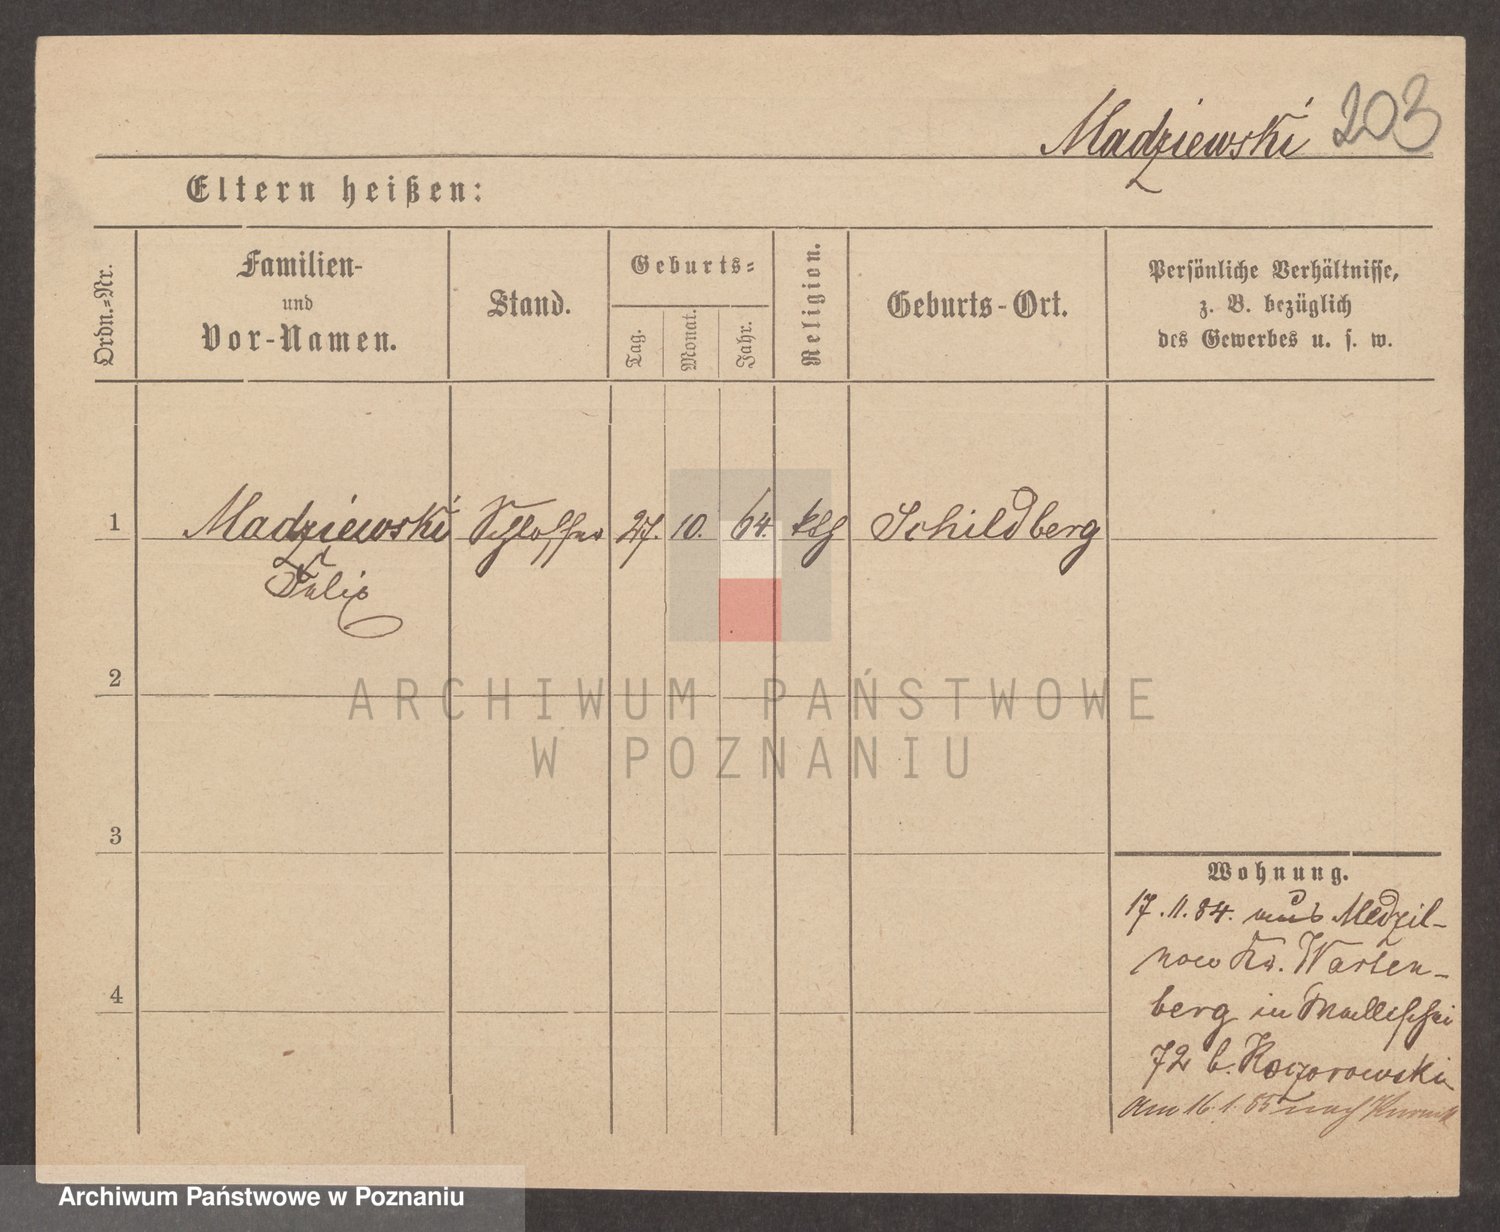 Madziewski 203
Eltern heißen:
Ordn.-Nr.
Familien-
und
Vor-Namen.
Stand.
Geburts-
Tag.
Monat.
Jahr.
Religion.
Geburts-Ort.
Persönliche Verhältnisse,
z. B. bezüglich
des Gewerbes u. s. w.
1 Madziewski Schlosser 27. 10. 64. klh Schildberg
Felix
2
ARCHIWUM PAŃSTWOWE
W POZNANIU
3
Wohnung.
17.11.84. aus Medzil-
now Kr. Warten-
berg in Wallischei
72 b. Koczorowski
4
Am 16.1.85 nach Kurnik
Archiwum Państwowe w Poznaniu